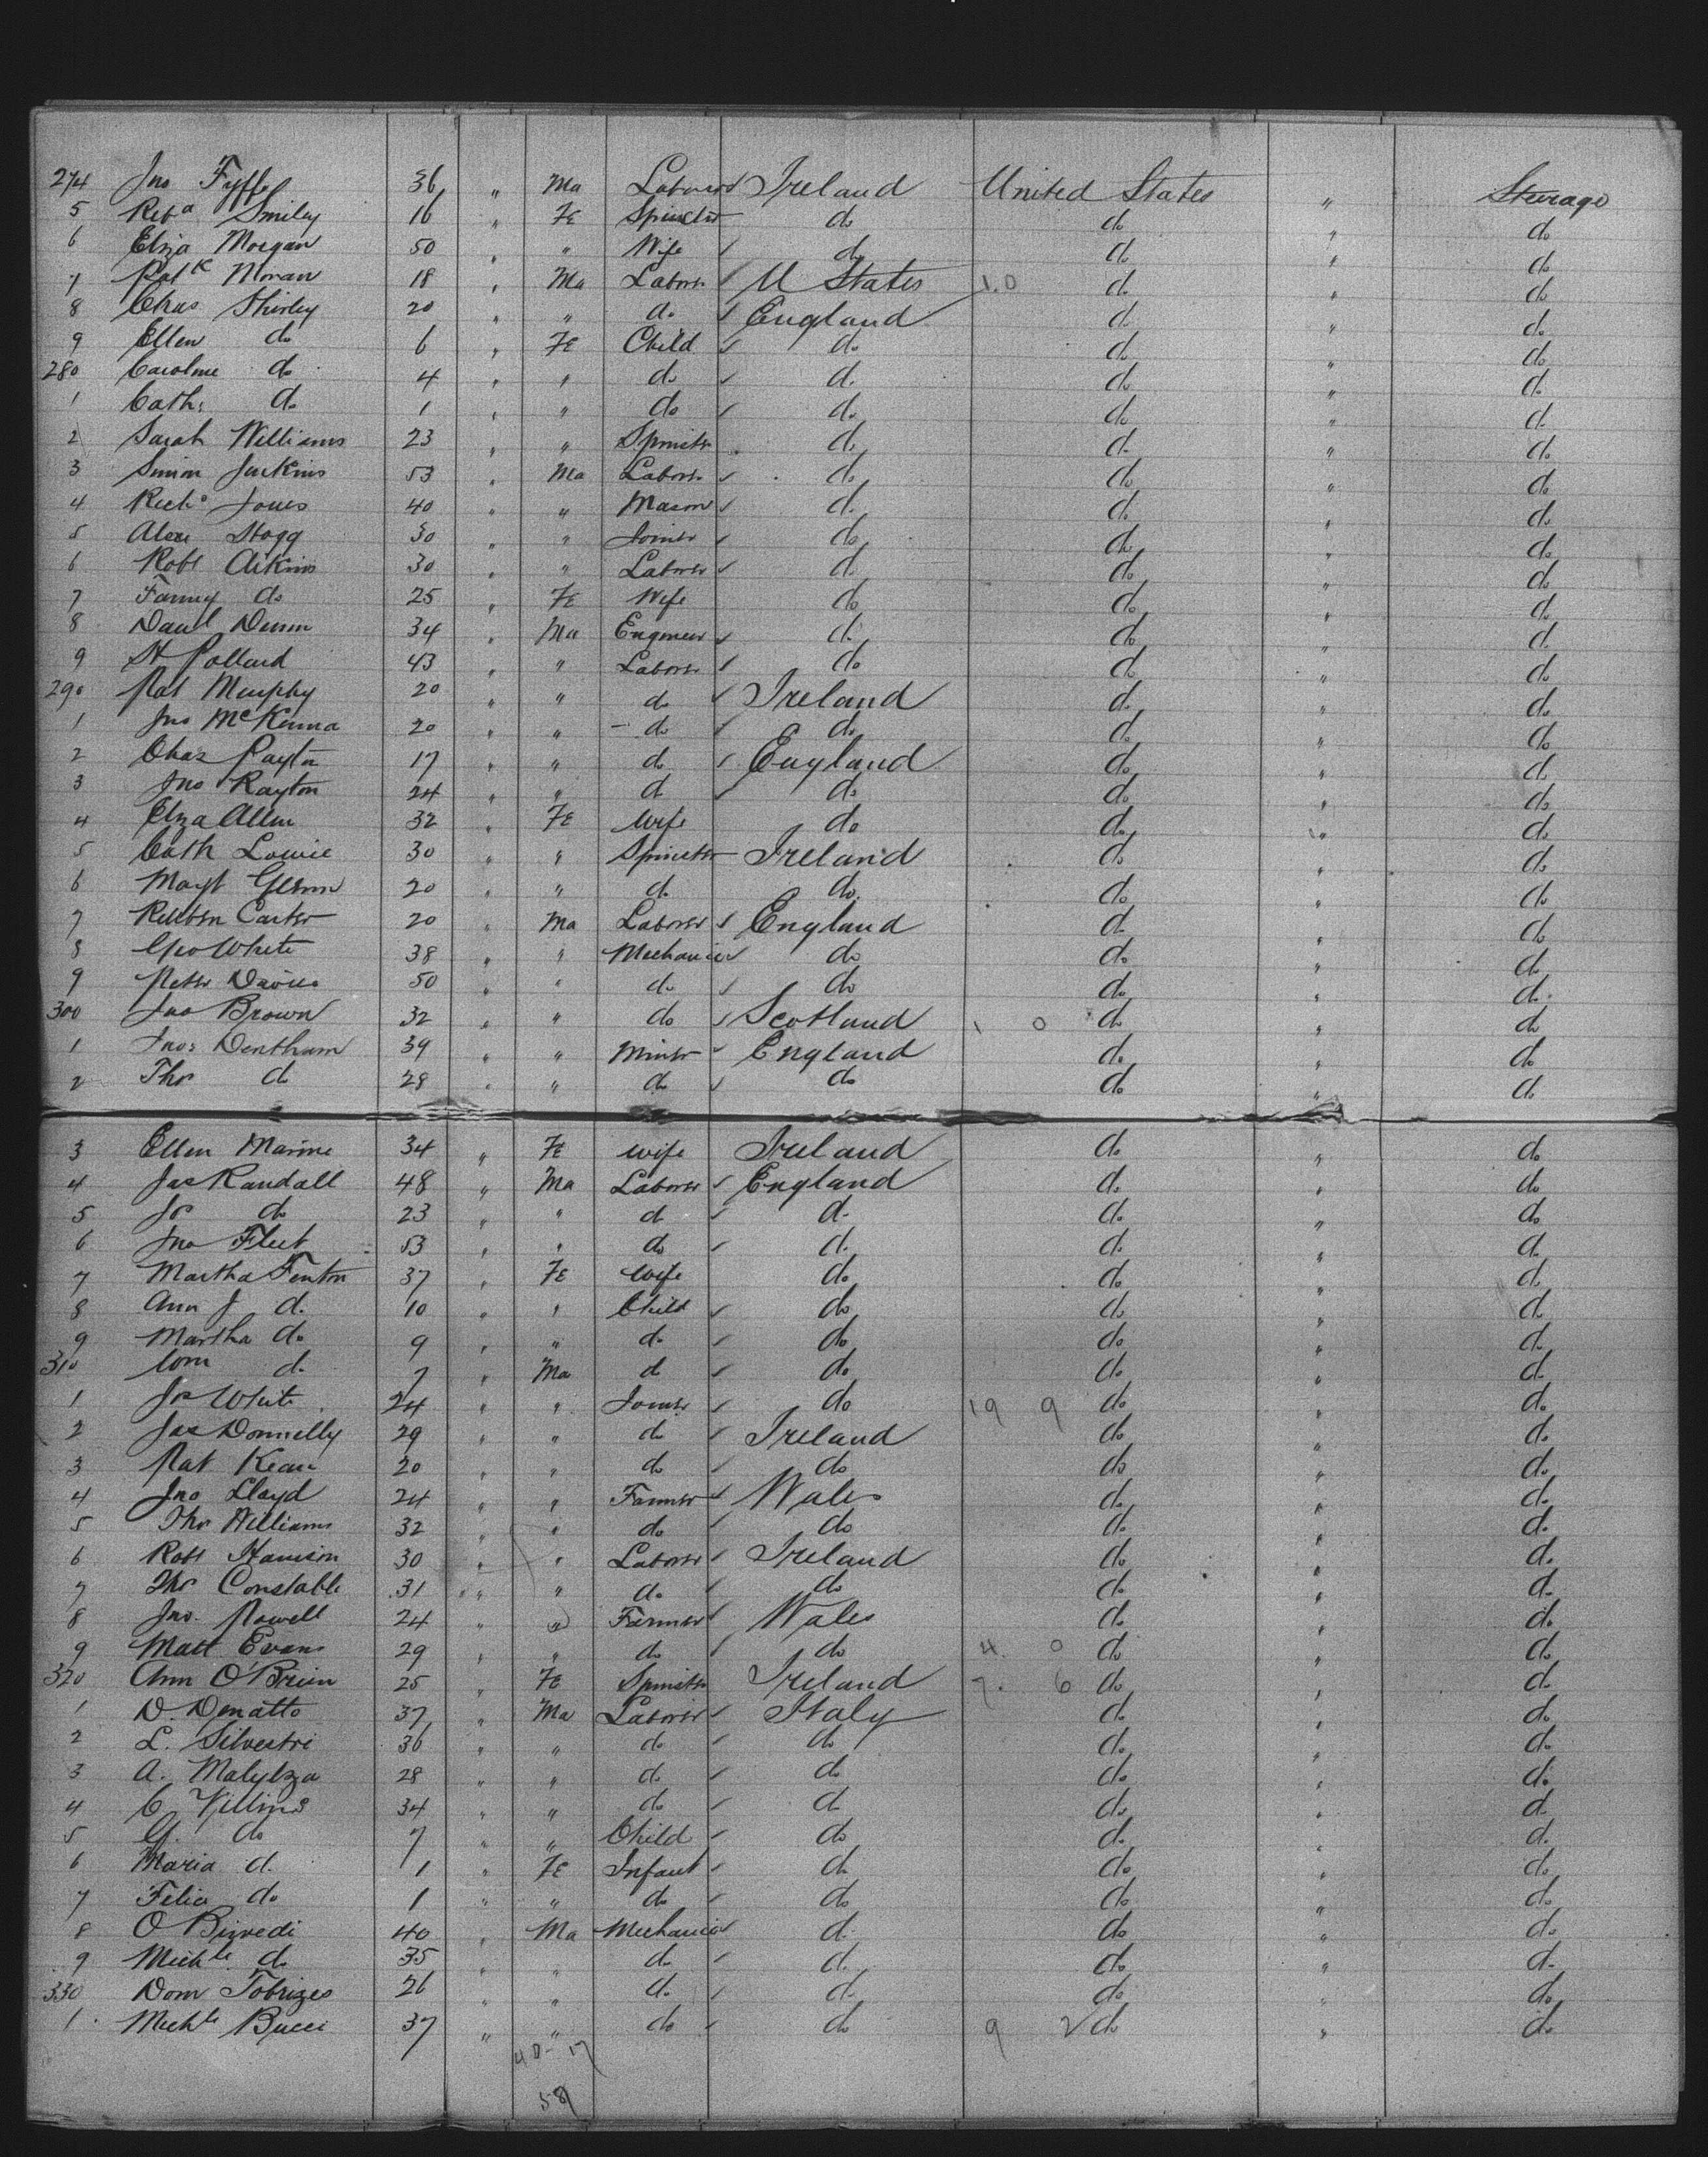 274 Jno Fyffe 36 " Ma Laborer Ireland United States " Steerage
5 Reb^a Smiley 16 " Fe Spinster do do " do
6 Eliza Morgan 50 " " Wife do do " do
7 Pat^k Moran 18 " Ma Laborer U States 1.0 do " do
8 Chas Shirley 20 " " do England do " do
9 Ellen do 6 " Fe Child do do " do
280 Caroline do 4 " " do do do " do
1 Cath: do 1 " " do do do " do
2 Sarah Williams 23 " " Spinster do do " do
3 Simon Jenkins 53 " Ma Laborer do do " do
4 Rich^d Jones 40 " " Mason do do " do
5 Alex Hogg 30 " " Joiner do do " do
6 Robt Aikins 30 " " Laborer do do " do
7 Fanny do 25 " Fe Wife do do " do
8 Danl Dunn 34 " Ma Engineer do do " do
9 H Pollard 43 " " Laborer do do " do
290 Pat Murphy 20 " " do Ireland do " do
1 Jno McKenna 20 " " do do do " do
2 Chas Payton 17 " " do England do " do
3 Jno Rayton 24 " " do do do " do
4 Eliza Allen 32 " Fe Wife do do " do
5 Cath Lowrie 30 " " Spinster Ireland do " do
6 Magt 20 " " do do do " do
7 Reuben Carter 20 " Ma Laborer England do " do
8 Geo White 38 " " Mechanic do do " do
9 Peter Davies 50 " " do do do " do
300 Jno Brown 32 " " do Scotland 1 0 do " do
1 Jno: Dentham 39 " " Miner England do " do
2 Thos do 28 " " do do do " do
3 Ellen Marine 34 " Fe Wife Ireland do " do
4 Jas Randall 48 " Ma Laborer England do " do
5 Js do 23 " " do do do " do
6 Jno Fleet 53 " " do do do " do
7 Martha Fenton 37 " Fe Wife do do " do
8 Ann J do 10 " " Child do do " do
9 Martha do 9 " " do do do " do
310 Wm do 7 " Ma do do do " do
1 Js White 24 " " Joiner do 19 9 do " do
2 Jas Donnelly 29 " " do Ireland do " do
3 Pat Kean 20 " " do do do " do
4 Jno Lloyd 24 " " Farmer Wales do " do
5 Thos Williams 32 " " do do do " do
6 Robt Hanison 30 " " Laborer Ireland do " do
7 Thos Constable 31 " " do do do " do
8 Jno. Powell 24 " " Farmer Wales do " do
9 Matt Evans 29 " " do do 4. 0 do " do
320 Ann O'Brien 25 " Fe Spinster Ireland 7. 6 do " do
1 D. Donatto 37 " Ma Laborer Italy do " do
2 L. Silvestri 36 " " do do do " do
3 A. Malylza 28 " " do do do " do
4 C 34 " " do do do " do
5 G. do 7 " " Child do do " do
6 Maria do 1 " Fe Infant do do " do
7 Felia do 1 " " do do do " do
8 O 40 " Ma Mechanic do do " do
9 Mich^le do 35 " " do do do " do
330 Dom Tobrizes 26 " " do do do " do
1 Mich^le Bucci 37 " " do do 9 2 do " do
40 - 17
58